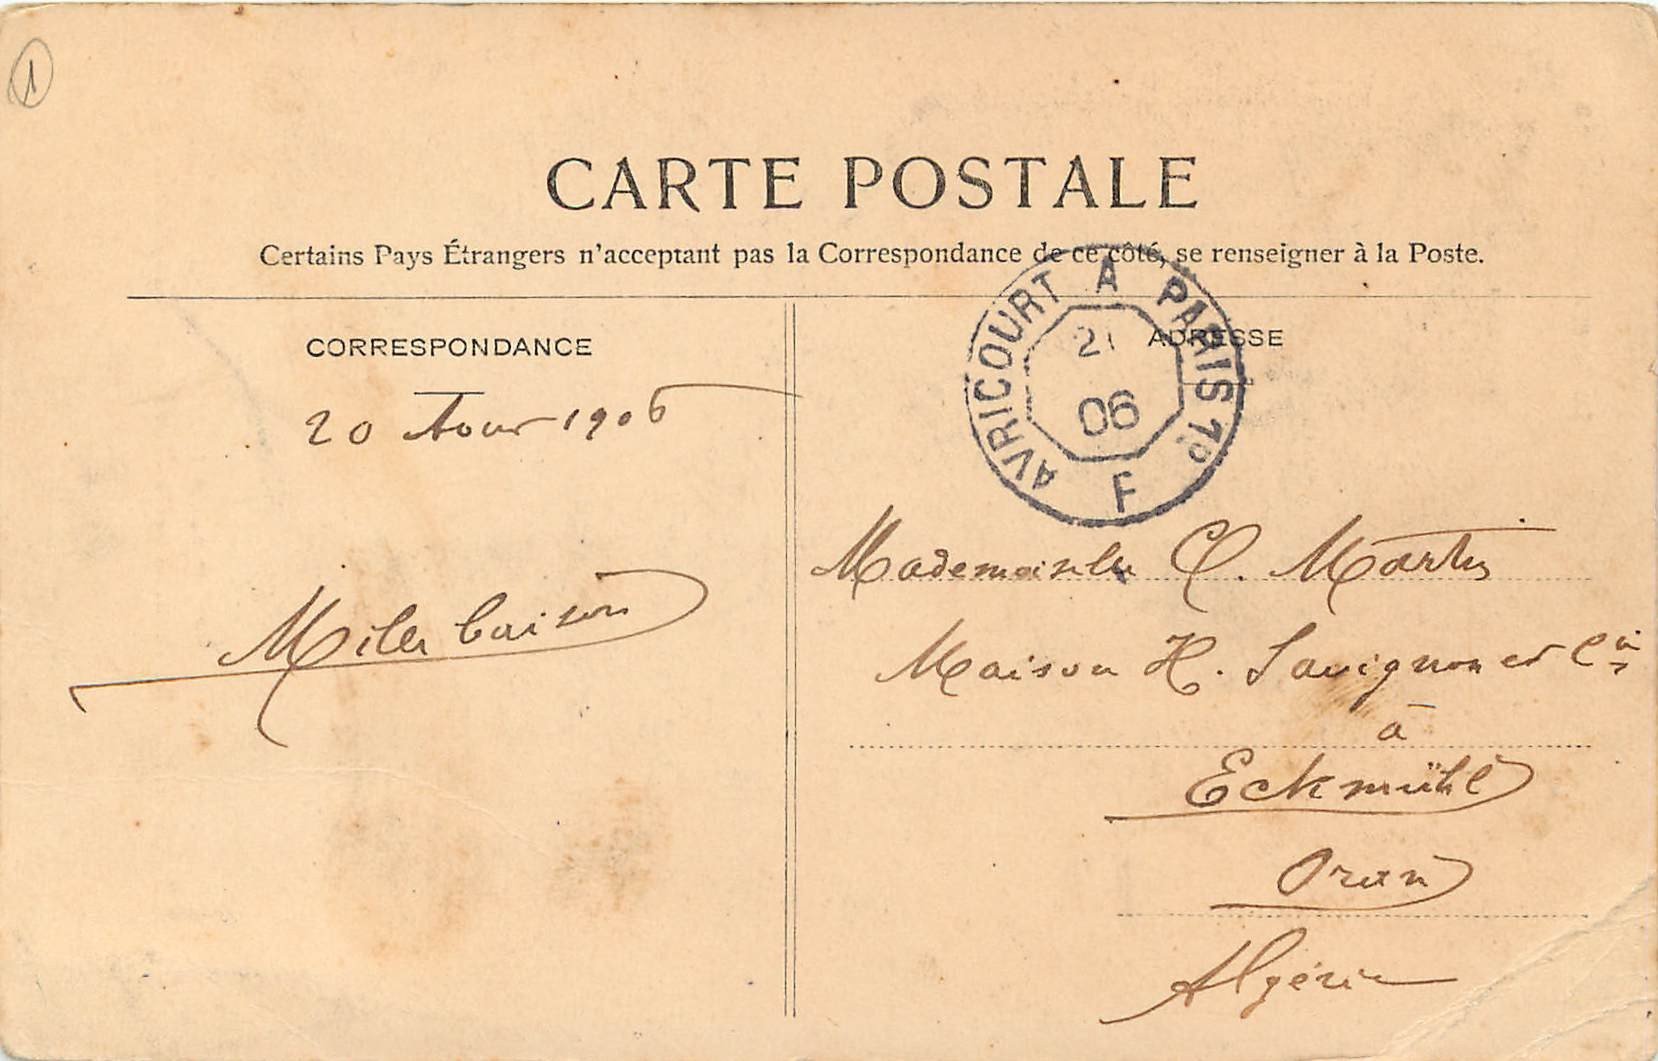 1
CARTE POSTALE
Certains Pays Étrangers n'acceptant pas la Correspondance de ce côté, se renseigner à la Poste.
CORRESPONDANCE
20 Aout 1906
Mademoiselle C. Martin
Maison H. Savignon et Cie
à
Eckmühl
Oran
Algérie
ADRESSE
AVRICOURT A PARIS 1º
21
06
F